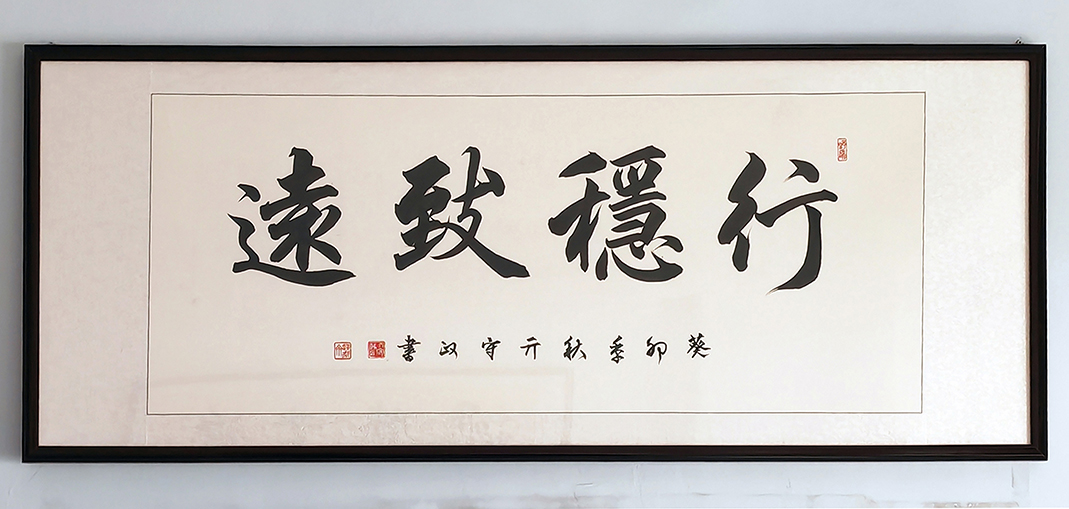 行穩致遠
葵卯季秋亓守政書